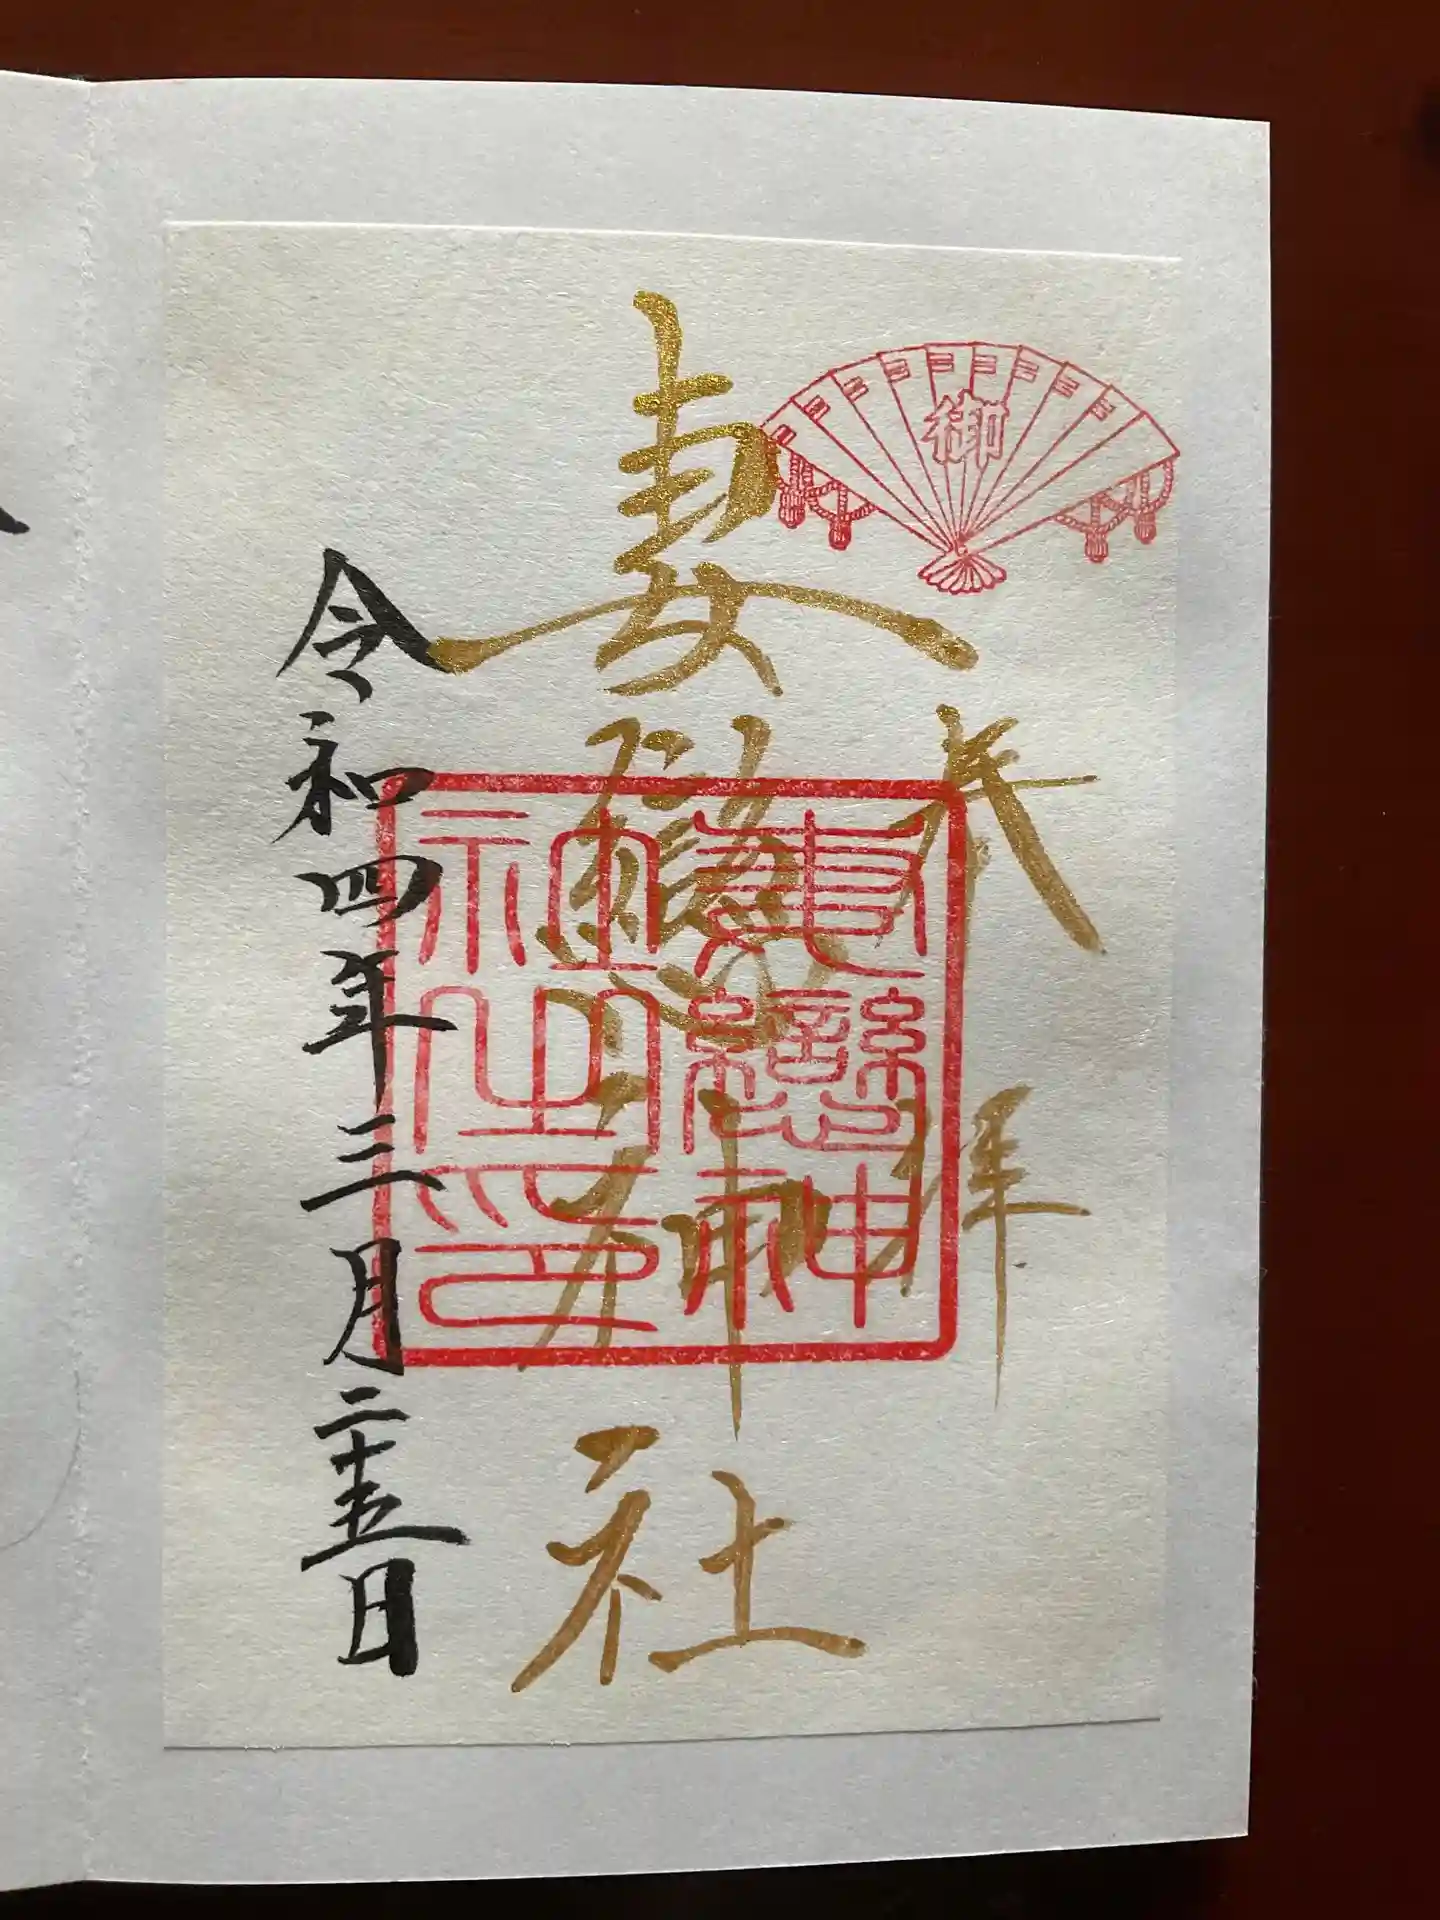 御
奉拝
妻戀神社
妻戀神
社之印
令和四年三月二十五日